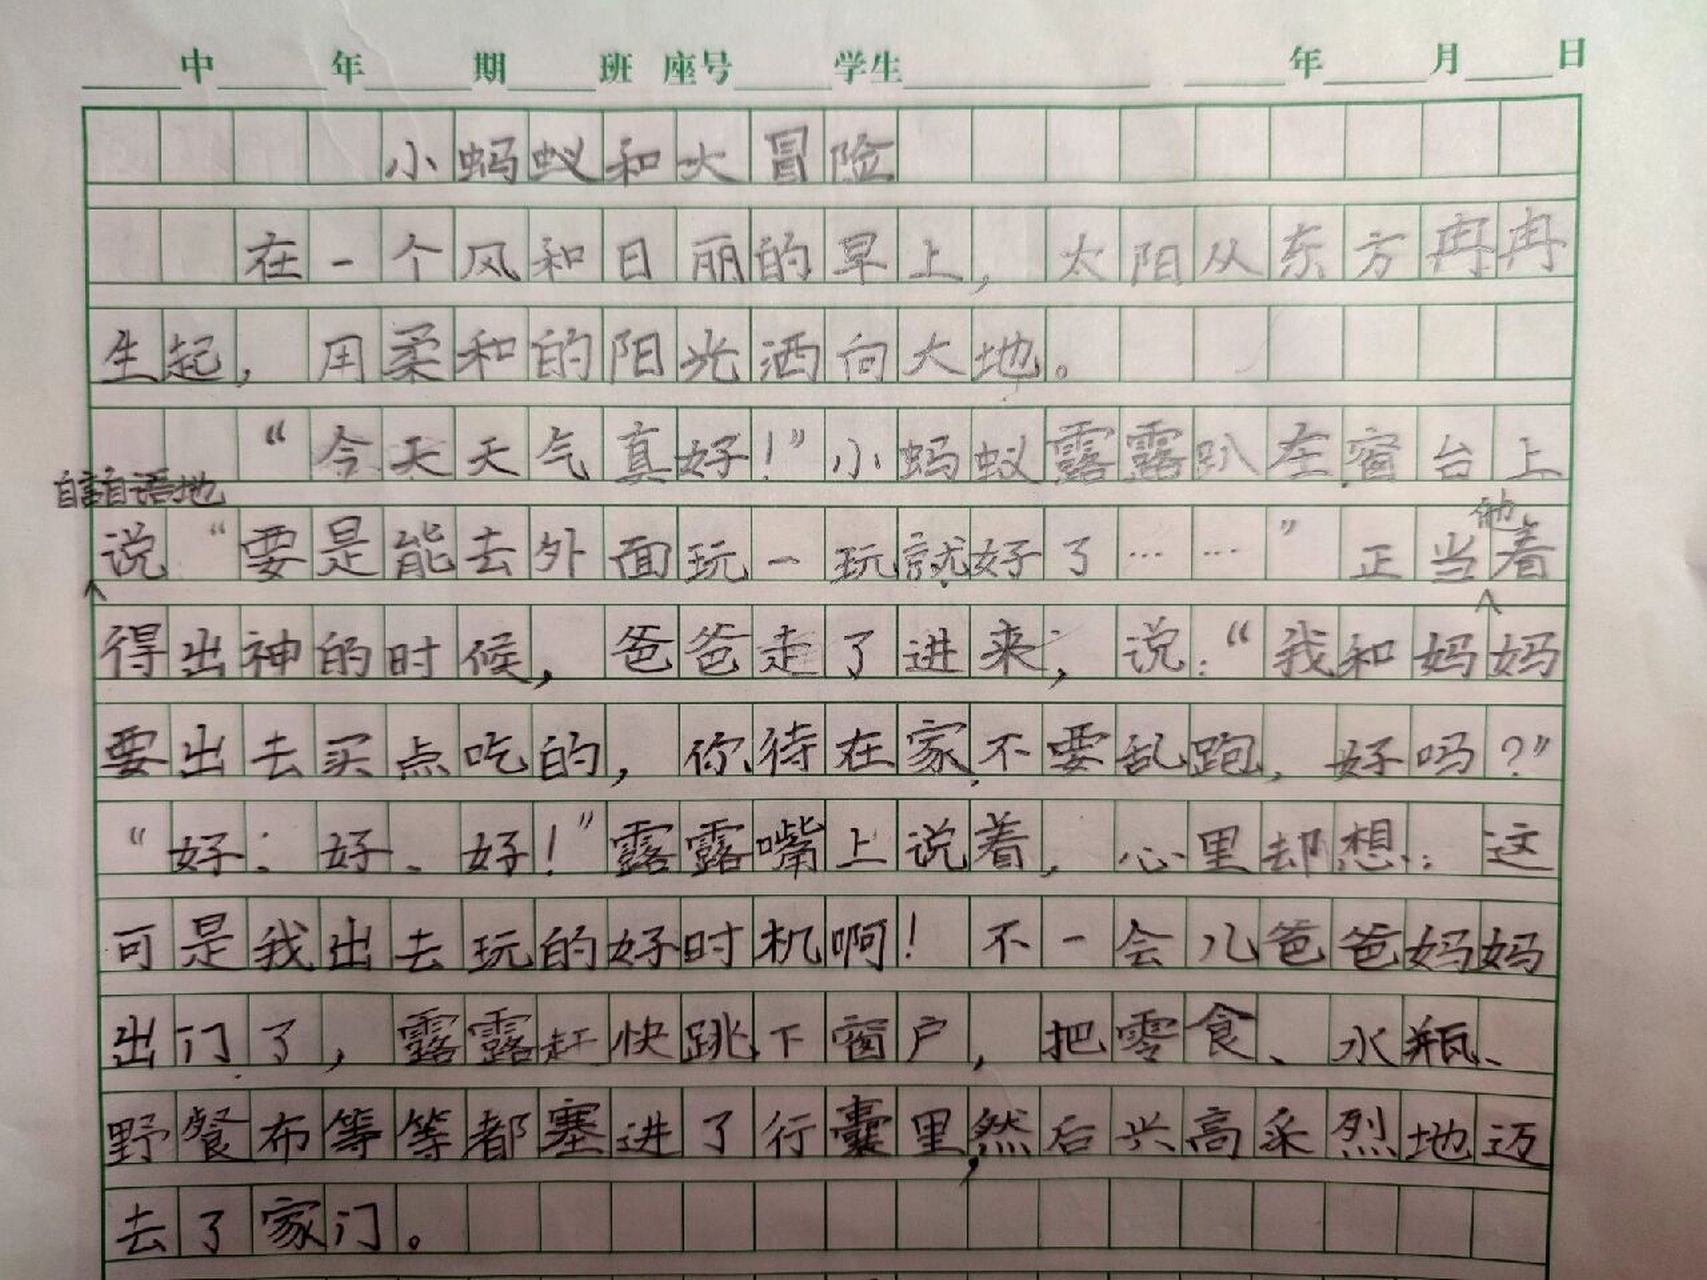 中 年 期 班 座号 学生 年 月 日
小蚂蚁和大冒险
在一个风和日丽的早上，太阳从东方冉冉
生起，用柔和的阳光洒向大地。
“今天天气真好！”小蚂蚁露露趴在窗台上
自言自语地
说“要是能去外面玩一玩就好了……”正当他看
得出神的时候，爸爸走了进来，说：“我和妈妈
要出去买点吃的，你待在家不要乱跑，好吗？”
“好、好、好！”露露嘴上说着，心里却想：这
可是我出去玩的好时机啊！不一会儿爸爸妈妈
出门了，露露赶快跳下窗户，把零食、水瓶、
野餐布等等都塞进了行囊里，然后兴高采烈地迈
去了家门。